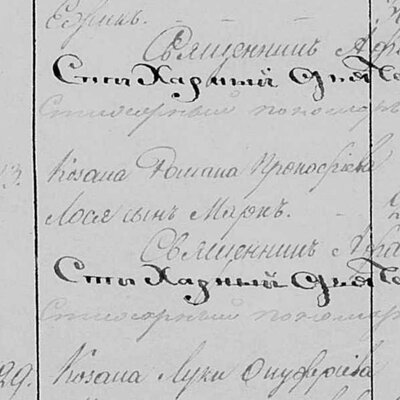 Священникъ
Стихарный Дья
Стихарный пономарь
13. Козака Романа Прокофіева
Лося сынъ Маркъ.
Священникъ
Стихарный Дья
Стихарный пономар
29. Козака Луки Онуфріева